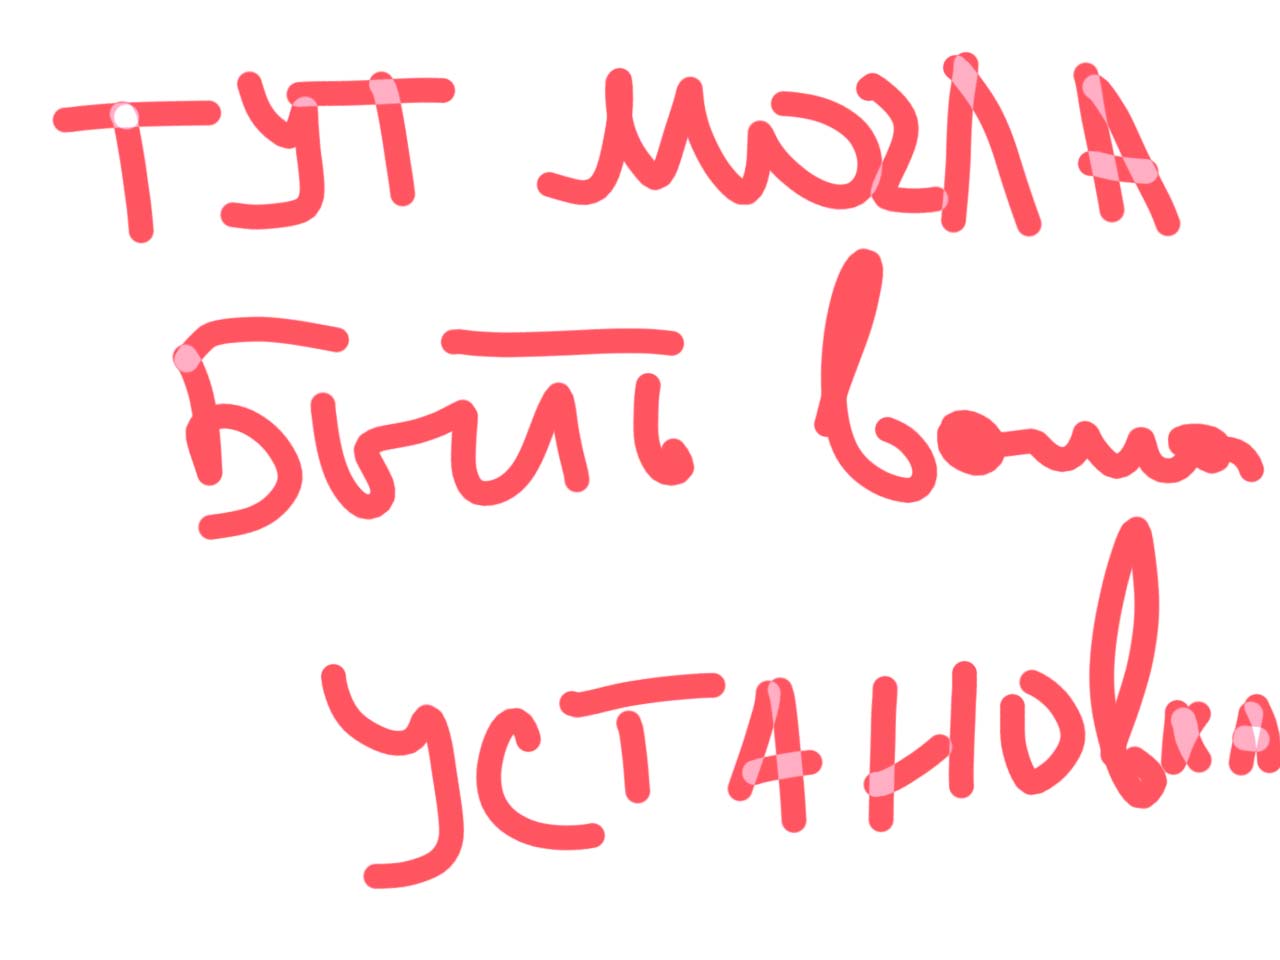 ТУТ МОГЛА
БЫТЬ ваша
УСТАНОВКА